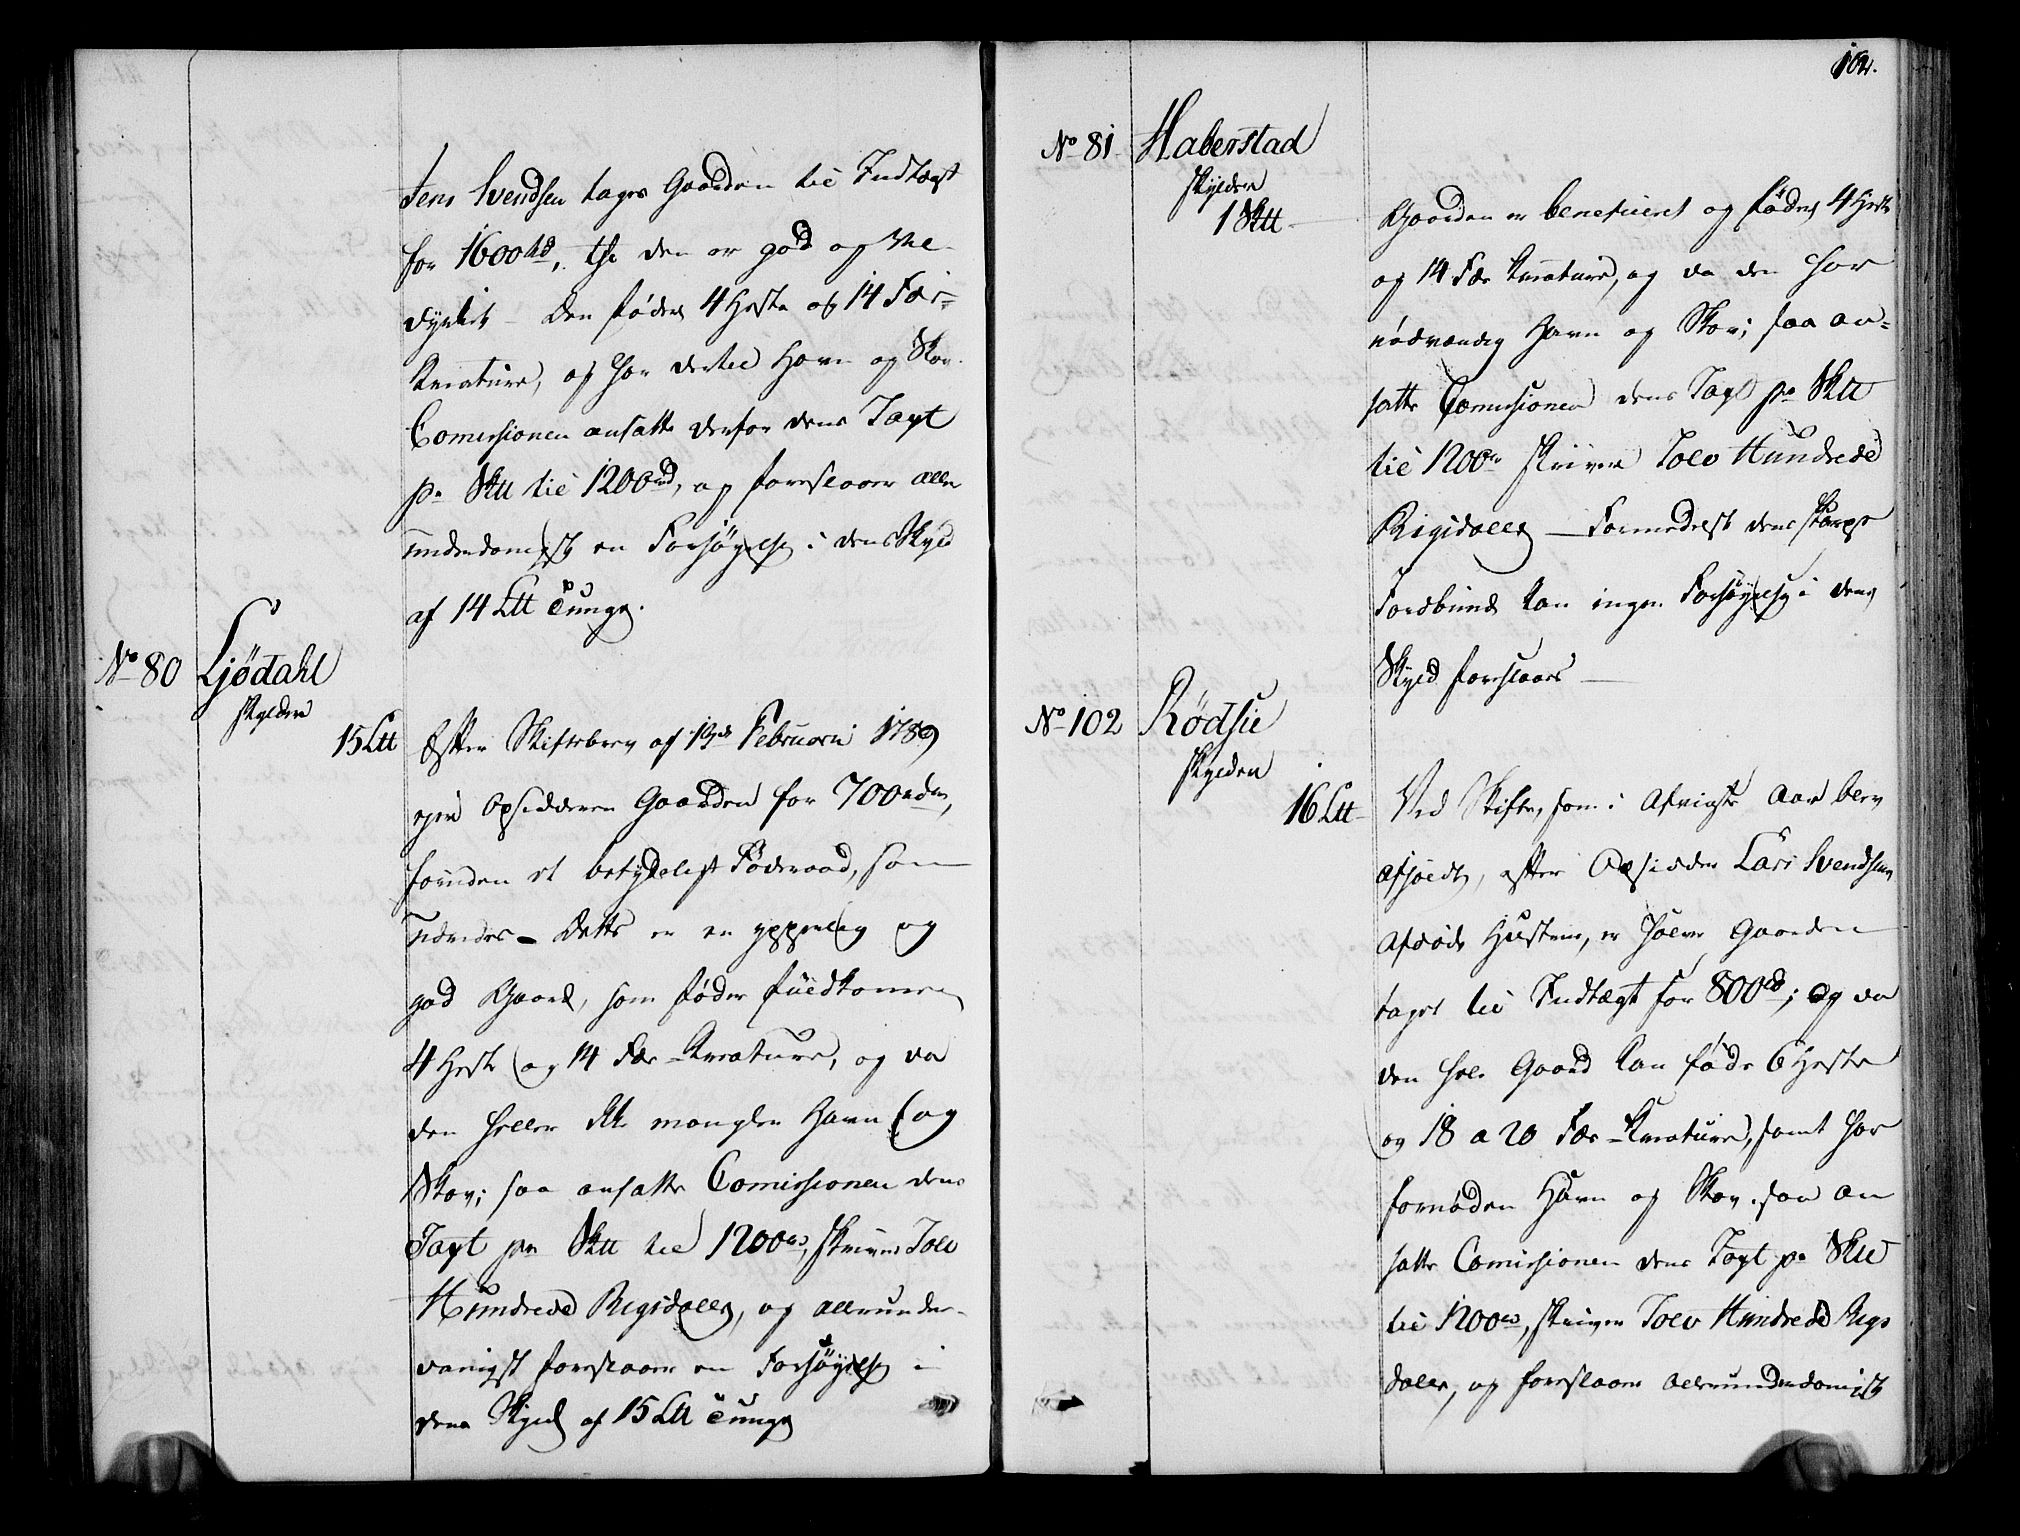 Jens Svendsen tages Gaarden til Indtægt
for 1600 rd, thi den er god og vel
dyrket – Den føder 4 Heste og 14 Fæe=
Kreature, og har dertil Havn og Skov.
Comissionen ansatte derfor dens Taxt
pr Sktt til 1200 rd, og foreslaaer aller
underdanigst en Forhøyelse i dens Skyld
af 14 Ltt Tunge.
No 80 Ljødahl
skylder
15 Ltt Efter Skiftebrev af Februarii 1789
ejer Opsidderen Gaarden for 700 rdr,
foruden et betydeligt Føderaad, som
udredes – Dette er en ypperlig og
god Gaard, som føder fuldkommen
4 Heste og 14 Fæe-Kreature, og da
den heller ikke mangler Havn og
Skov; saa ansatte Comissionen dens
Taxt pr Sktt til 1200 rd, skriver Tolv
Hundrede Rigsdaler, og allerunder-
danigst foreslaaer en Forhøyelse i
dens Skyld af 15 Ltt Tunge
102.
No 81 Haberstad
skylder
1 Sktt –
Gaarden er beneficeret og føder 4 Heste
og 14 Fæe Kreature, og da den har
nødvendig Havn og Skov; saa an=
satte Comissionen dens Taxt pr Sktt
til 1200 rd skriver Tolv Hundrede
Rigsdaler – Formedelst dens skarpe
Jordbund kan ingen Forhøyelse i dens
Skyld foreslaaes –
No 102 Rødsie
skylder
16 Ltt – Ved Skifte, som i afvigte Aar blev
afholdt, efter Opsidder Lars Svendsens
afdøde Hustrue, er halve Gaarden
taget til Indtægt for 800 rd; og da
den hele Gaard kan føde 6 Heste
og 18 a 20 Fæe-Kreature, samt har
fornøden Havn og Skov. saa an
satte Comissionen dens Taxt pr Sktt
til 1200 rd, skriver Tolv Hundrede Rigs
daler, og foreslaaer allerunderdanigst